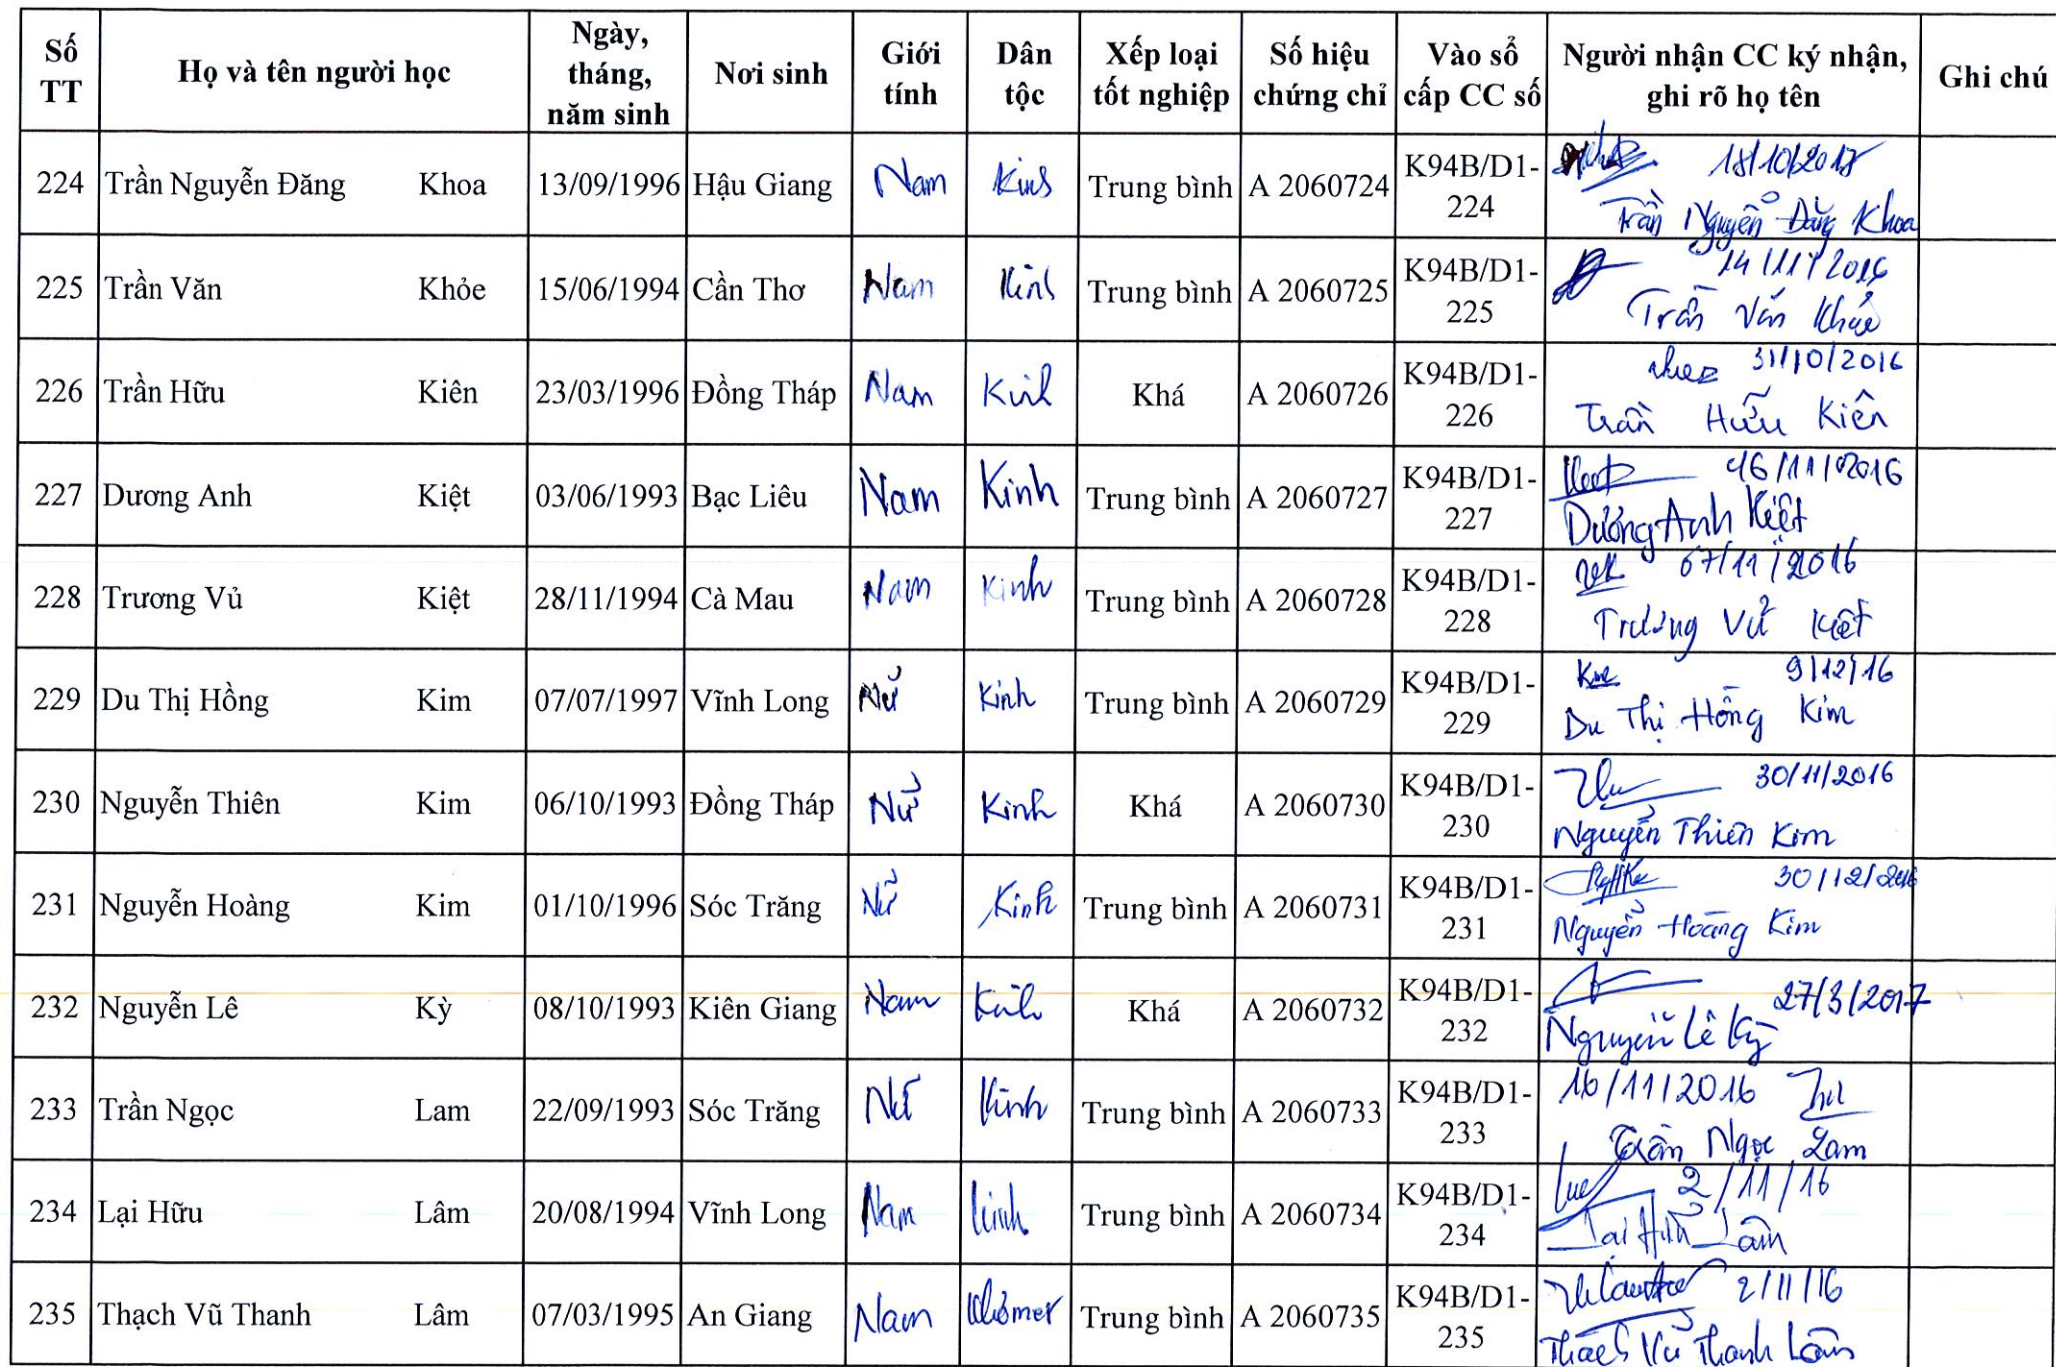 Số TT Họ và tên người học Ngày, tháng, năm sinh Nơi sinh Giới tính Dân tộc Xếp loại tốt nghiệp Số hiệu chứng chỉ Vào sổ cấp CC số Người nhận CC ký nhận, ghi rõ họ tên Ghi chú
224 Trần Nguyễn Đăng Khoa 13/09/1996 Hậu Giang Nam Kinh Trung bình A 2060724 K94B/D1-224 18/10/2017 Trần Nguyễn Đăng Khoa
225 Trần Văn Khỏe 15/06/1994 Cần Thơ Nam Kinh Trung bình A 2060725 K94B/D1-225 14/11/2016 Trần Văn Khỏe
226 Trần Hữu Kiên 23/03/1996 Đồng Tháp Nam Kinh Khá A 2060726 K94B/D1-226 31/10/2016 Trần Hữu Kiên
227 Dương Anh Kiệt 03/06/1993 Bạc Liêu Nam Kinh Trung bình A 2060727 K94B/D1-227 16/11/2016 Dương Anh Kiệt
228 Trương Vủ Kiệt 28/11/1994 Cà Mau Nam Kinh Trung bình A 2060728 K94B/D1-228 07/11/2016 Trương Vủ Kiệt
229 Du Thị Hồng Kim 07/07/1997 Vĩnh Long Nữ Kinh Trung bình A 2060729 K94B/D1-229 9/12/16 Du Thị Hồng Kim
230 Nguyễn Thiên Kim 06/10/1993 Đồng Tháp Nữ Kinh Khá A 2060730 K94B/D1-230 30/11/2016 Nguyễn Thiên Kim
231 Nguyễn Hoàng Kim 01/10/1996 Sóc Trăng Nữ Kinh Trung bình A 2060731 K94B/D1-231 30/12/2016 Nguyễn Hoàng Kim
232 Nguyễn Lê Kỳ 08/10/1993 Kiên Giang Nam Kinh Khá A 2060732 K94B/D1-232 27/3/2017 Nguyễn Lê Kỳ
233 Trần Ngọc Lam 22/09/1993 Sóc Trăng Nữ Kinh Trung bình A 2060733 K94B/D1-233 16/11/2016 Trần Ngọc Lam
234 Lại Hữu Lâm 20/08/1994 Vĩnh Long Nam Kinh Trung bình A 2060734 K94B/D1-234 2/11/16 Lại Hữu Lâm
235 Thạch Vũ Thanh Lâm 07/03/1995 An Giang Nam Khơmer Trung bình A 2060735 K94B/D1-235 2/11/16 Thạch Vũ Thanh Lâm